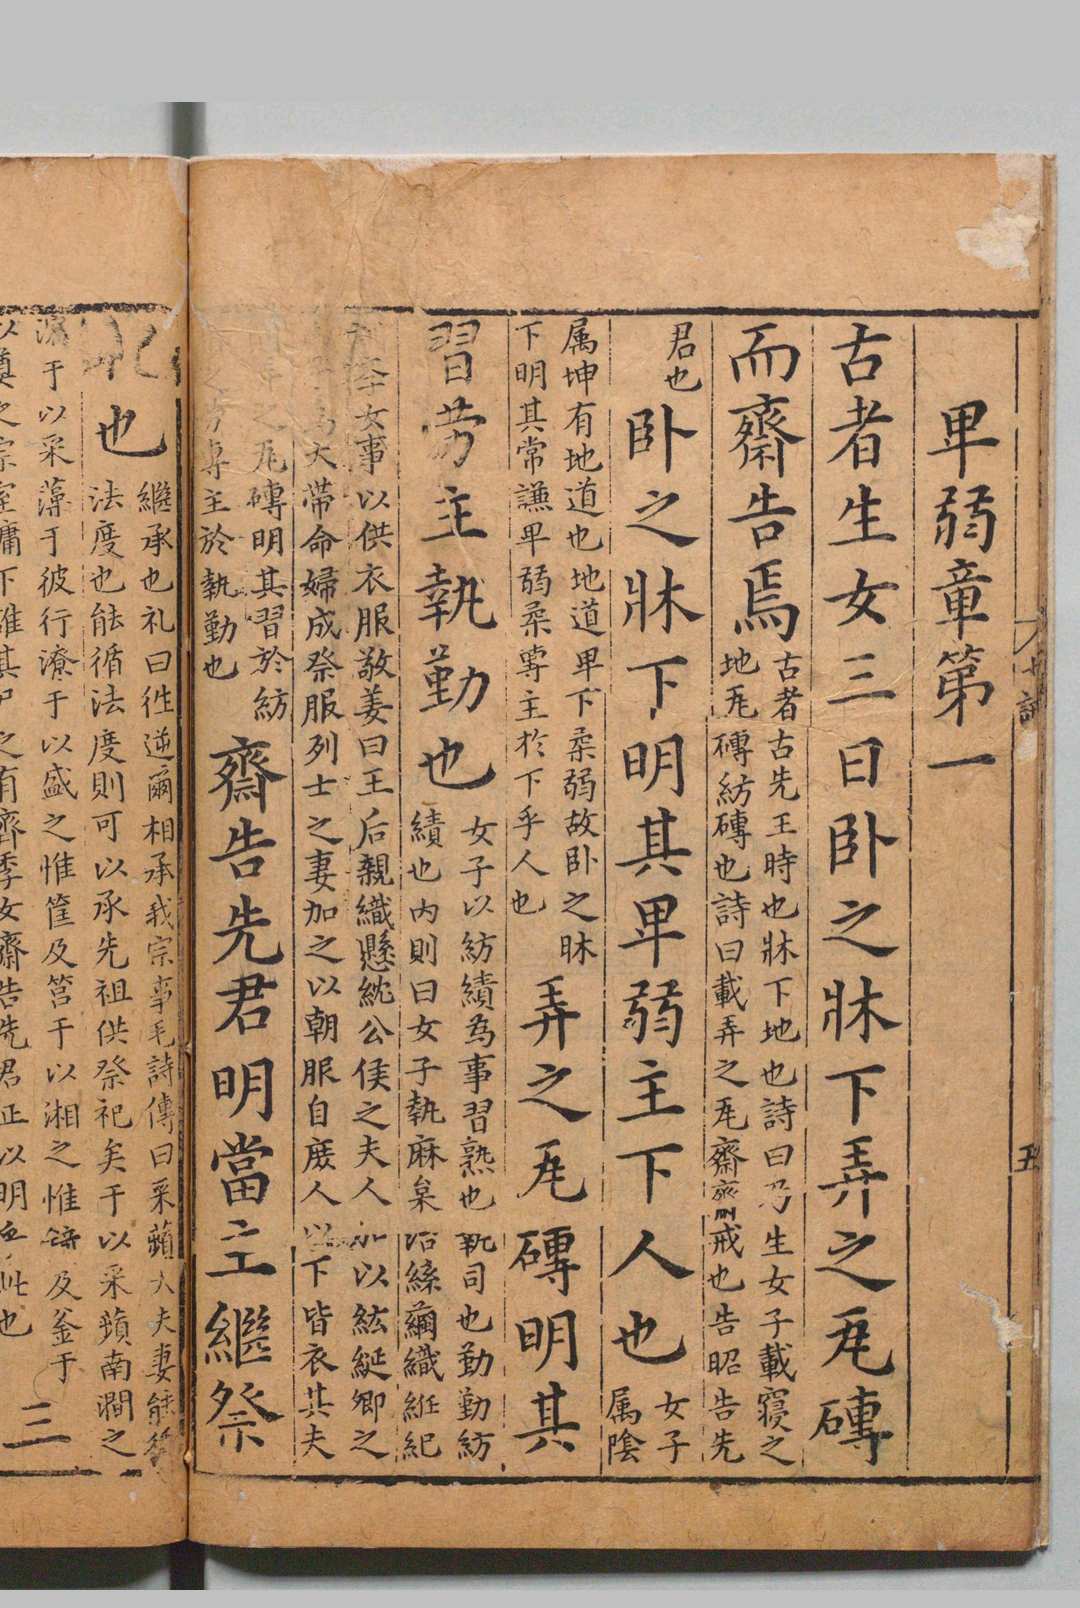 卑弱章第一
古者生女三日卧之牀下弄之瓦磚
而齋告焉
古者古先王時也牀下地也詩曰乃生女子載寢之
地瓦磚紡磚也詩曰載弄之瓦齋齊戒也告昭告先
君也
卧之牀下明其卑弱主下人也
女子
属陰
属坤有地道也地道卑下柔弱故卧之牀
下明其常謙卑弱柔專主於下乎人也
弄之瓦磚明其
習劳主執勤也
女子以紡績為事習熟也執司也勤勤紡
績也内則曰女子執麻枲治絲繭織紝紀
女事以供衣服敬姜曰王后親織懸紞公侯之夫人加以紘綖卿之
為大帶命婦成祭服列士之妻加之以朝服自庶人以下皆衣其夫
之瓦磚明其習於紡
專主於執勤也
齋告先君明當主繼祭
祀也
繼承也礼曰徃逆爾相承我宗事毛詩傳曰采蘋大夫妻能循
法度也能循法度則可以承先祖供祭祀矣于以采蘋南澗之
濱于以采藻于彼行潦于以盛之惟筐及筥于以湘之惟錡及釜于
以奠之宗室牖下誰其尸之有齊季女齋告先君正以明
此也
三
五